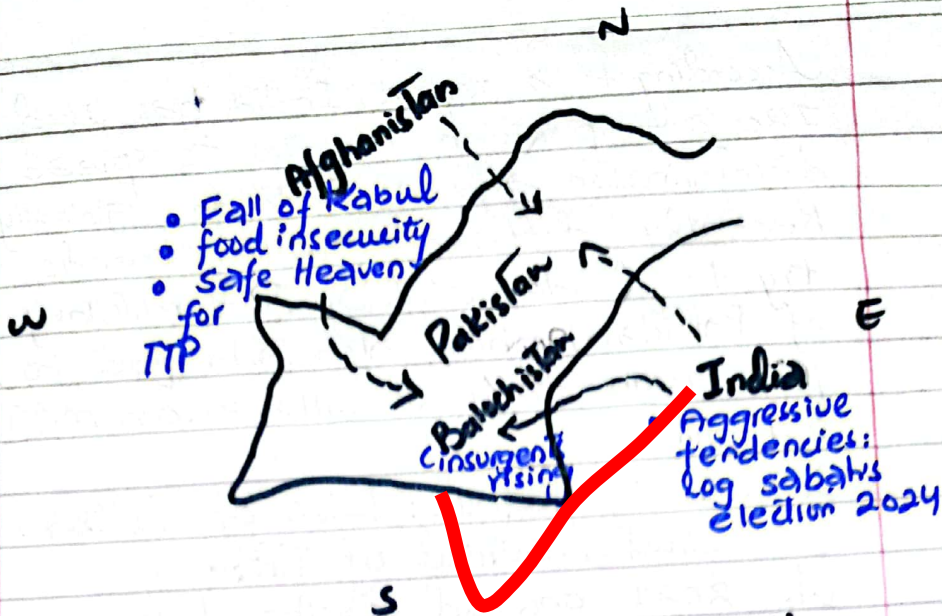 N
Afghanistan
• Fall of Kabul
• food insecurity
• safe Heaven
for
TTP
W
Pakistan
E
Balochistan
(insurgents
rising
India
• Aggressive
tendencies:
log sabahs
election 2024
S